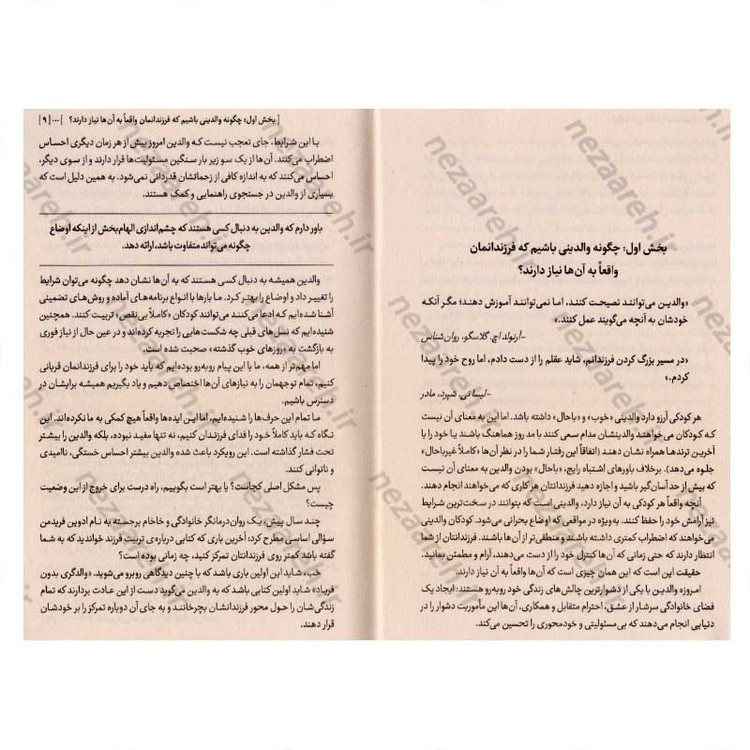 بخش اول: چگونه والدینی باشیم که فرزندانمان
واقعاً به آن‌ها نیاز دارند؟
«والدین می‌توانند نصیحت کنند، اما نمی‌توانند آموزش دهند؛ مگر آنکه
خودشان به آنچه می‌گویند عمل کنند.»
-آرنولد اچ. گلاسکو، روان‌شناس
«در مسیر بزرگ کردن فرزندانم، شاید عقلم را از دست دادم، اما روح خود را پیدا
کردم.»
-لیسا تی. شپرد، مادر
هر کودکی آرزو دارد والدینی «خوب» و «باحال» داشته باشد. اما این به معنای آن نیست
که کودکان می‌خواهند والدینشان مدام سعی کنند با مد روز هماهنگ باشند یا خود را با
آخرین ترندها همراه نشان دهند (اتفاقاً این رفتار شما را در نظر آن‌ها «کاملاً غیرباحال»
جلوه می‌دهد). برخلاف باورهای اشتباه رایج، «باحال» بودن والدین به معنای آن نیست
که بیش از حد آسان‌گیر باشید و اجازه دهید فرزندانتان هر کاری که می‌خواهند انجام دهند.
آنچه واقعاً هر کودکی به آن نیاز دارد، والدینی است که بتوانند در سخت‌ترین شرایط
نیز آرامش خود را حفظ کنند. به‌ویژه در مواقعی که اوضاع بحرانی می‌شود. کودکان والدینی
می‌خواهند که اضطراب کمتری داشته باشند و منطقی‌تر از آن‌ها باشند. فرزندانتان از شما
انتظار دارند که حتی زمانی که آن‌ها کنترل خود را از دست می‌دهند، آرام و مطمئن بمانید.
حقیقت این است که این همان چیزی است که آن‌ها واقعاً به آن نیاز دارند.
امروزه والدین با یکی از دشوارترین چالش‌های زندگی خود روبه‌رو هستند: ایجاد یک
فضای خانوادگی سرشار از عشق، احترام متقابل و همکاری. آن‌ها این مأموریت دشوار را در
دنیایی انجام می‌دهند که بی‌مسئولیتی و خودمحوری را تحسین می‌کند.
بخش اول: چگونه والدینی باشیم که فرزندانمان واقعاً به آن‌ها نیاز دارند؟ | ... | ۹ |
با این شرایط، جای تعجب نیست که والدین امروز بیش از هر زمان دیگری احساس
اضطراب می‌کنند. آن‌ها از یک سو زیر بار سنگین مسئولیت‌ها قرار دارند و از سوی دیگر،
احساس می‌کنند که به اندازه کافی از زحماتشان قدردانی نمی‌شود. به همین دلیل است که
بسیاری از والدین در جستجوی راهنمایی و کمک هستند.
باور دارم که والدین به دنبال کسی هستند که چشم‌اندازی الهام‌بخش از اینکه اوضاع
چگونه می‌تواند متفاوت باشد، ارائه دهد.
والدین همیشه به دنبال کسی هستند که به آن‌ها نشان دهد چگونه می‌توان شرایط
را تغییر داد و اوضاع را بهتر کرد. ما بارها با انواع برنامه‌های آماده و روش‌های تضمینی
آشنا شده‌ایم که ادعا می‌کنند می‌توانند کودکان «کاملاً بی‌نقص» تربیت کنند. همچنین
شنیده‌ایم که نسل‌های قبلی چه شکست‌هایی را تجربه کرده‌اند و در عین حال از نیاز فوری
به بازگشت به «روزهای خوب گذشته» صحبت شده است.
اما مهم‌تر از همه، ما با این پیام روبه‌رو بوده‌ایم که باید خود را برای فرزندانمان قربانی
کنیم، تمام توجهمان را به نیازهای آن‌ها اختصاص دهیم و یاد بگیریم همیشه برایشان در
دسترس باشیم.
ما تمام این حرف‌ها را شنیده‌ایم. اما این ایده‌ها واقعاً هیچ کمکی به ما نکرده‌اند. این
نگاه که باید کاملاً خود را فدای فرزندان کنیم، نه تنها مفید نبوده، بلکه والدین را بیشتر
تحت فشار گذاشته است. این رویکرد باعث شده والدین بیشتر احساس خستگی، ناامیدی
و ناتوانی کنند.
پس مشکل اصلی کجاست؟ یا بهتر است بگوییم، راه درست برای خروج از این وضعیت
چیست؟
چند سال پیش، یک روان‌درمانگر خانوادگی و خاخام برجسته به نام ادوین فریدمن
سؤالی اساسی مطرح کرد: آخرین باری که کتابی درباره‌ی تربیت فرزند خواندید که به شما
گفته باشد کمتر روی فرزندانتان تمرکز کنید، چه زمانی بوده است؟
خب، شاید این اولین باری باشد که با چنین دیدگاهی روبرو می‌شوید. «والدگری بدون
فریاد» شاید اولین کتابی باشد که به والدین می‌گوید دست از این عادت بردارند که تمام
زندگی‌شان را حول محور فرزندانشان بچرخانند و به جای آن دوباره تمرکز را بر خودشان
قرار دهند.
nezaareh.ir